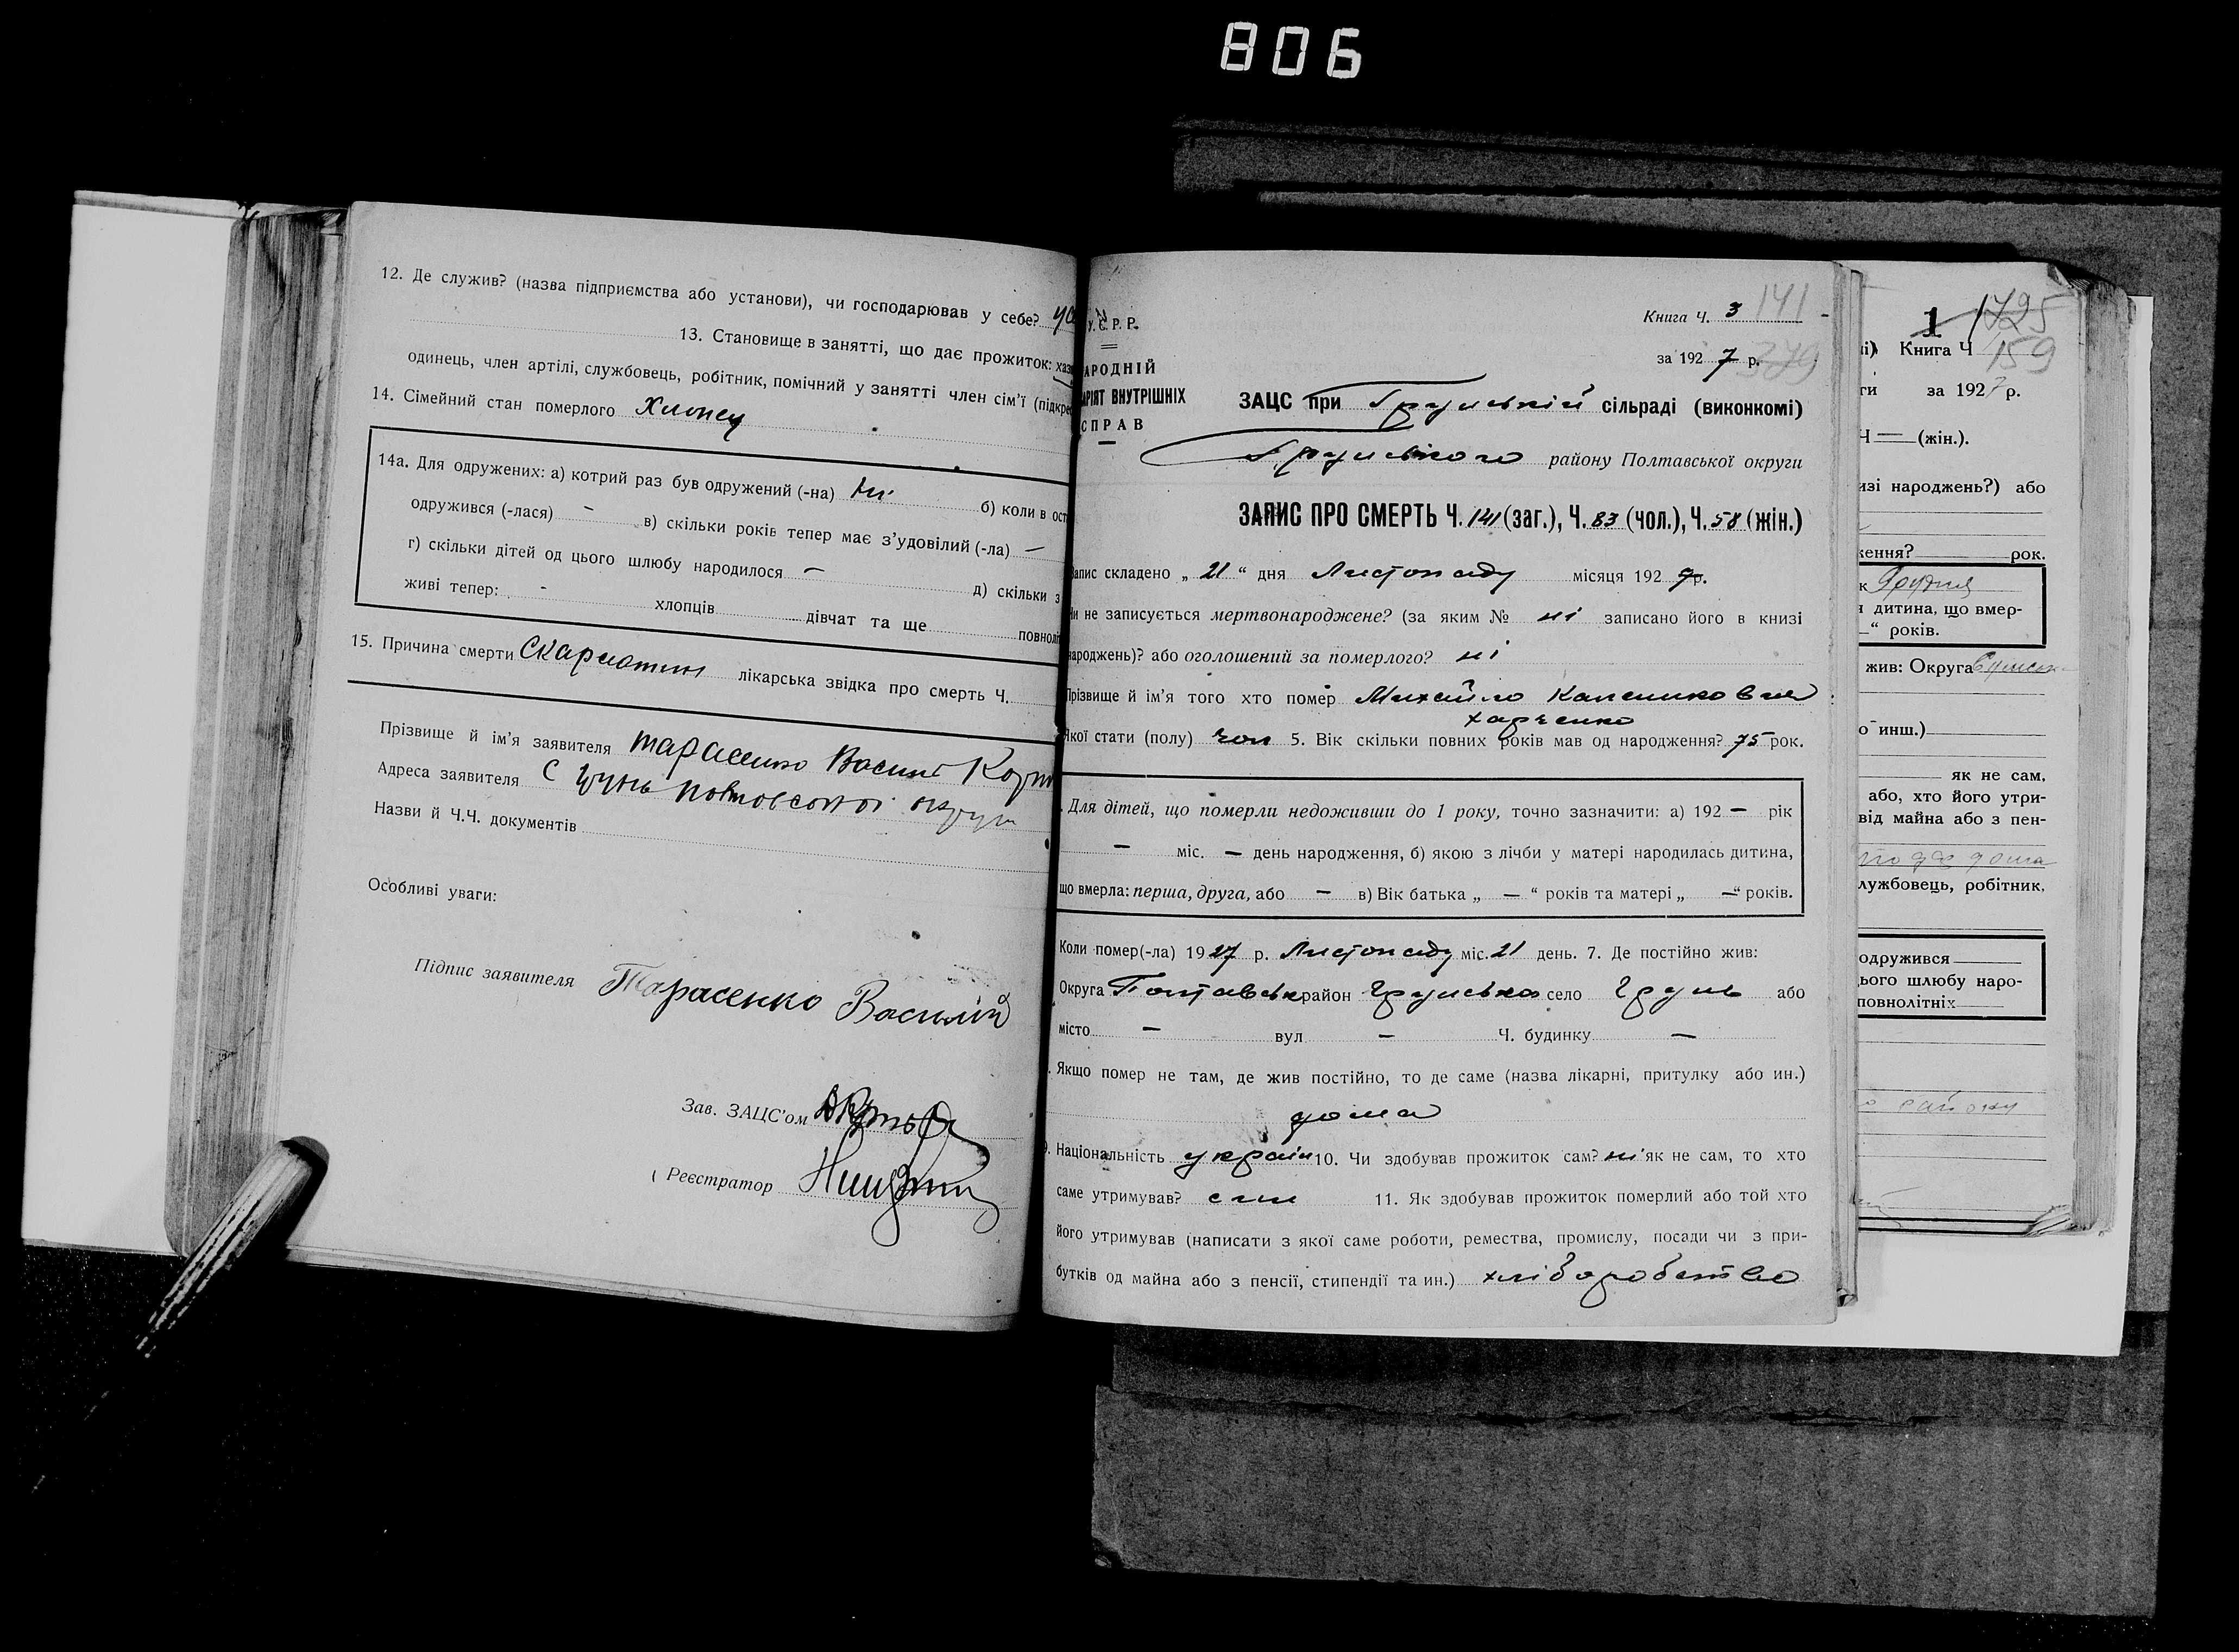 806
12. Де служив? (назва підприємства або установи), чи господарював у себе?
13. Становище в занятті, що дає прожиток:
одинець, член артілі, службовець, робітник, помічний у занятті член сім'ї
14. Сімейний стан померлого Хлопец
14а. Для одружених: а) котрий раз був одружений (-на) ні б) коли в
одружився (-лася) – в) скільки років тепер має з'удовілий (-ла) –
г) скільки дітей од цього шлюбу народилося – д) скільки з
живі тепер: - хлопців дівчат та ще
15. Причина смерти Скарлатин лікарська звідка про смерть Ч.
Прізвище й ім'я заявителя Тарасенко
Адреса заявителя С
Назви й Ч.Ч. документів
Особливі уваги:
Підпис заявителя Тарасенко Василий
Зав. ЗАЦС'ом
Реєстратор
У.С.Р.Р.
АРОДНІЙ
АРІЯТ ВНУТРІШНІХ
СПРАВ
Книга Ч. 3 141
за 1927 р. 379
ЗАЦС при Грунській сільраді (виконкомі)
Грунського району Полтавської округи
ЗАПИС ПРО СМЕРТЬ Ч. 141 (заг.), Ч. 83 (чол.), Ч. 58 (жін.)
Запис складено „ 21 “ дня Листопаду місяця 1927 р.
Чи не записується мертвонароджене? (за яким № ні записано його в книзі
народжень)? або оголошений за померлого? ні
Прізвище й ім'я того хто помер Михайло
харченко
Якої стати (полу) чол 5. Вік скільки повних років мав од народження? 75 рок.
Для дітей, що померли недоживши до 1 року, точно зазначити: а) 192 – рік
– міс. – день народження, б) якою з лічби у матері народилась дитина,
що вмерла: перша, друга, або – в) Вік батька „ – “ років та матері „ – “ років.
Коли помер(-ла) 1927 р. Листопаду міс. 21 день. 7. Де постійно жив:
Округа Полтавськ район Грунська село Грунь або
місто – вул – Ч. будинку –
Якщо помер не там, де жив постійно, то де саме (назва лікарні, притулку або ин.)
дома
9. Національність україн 10. Чи здобував прожиток сам? ні як не сам, то хто
саме утримував? син 11. Як здобував прожиток померлий або той хто
його утримував (написати з якої саме роботи, ремества, промислу, посади чи з при-
бутків од майна або з пенсії, стипендії та ин.) хліборобство
1 725
Книга Ч 159
за 1927 р.
Ч — (жін.).
народжень?) або
рок.
Грудня
дитина, що вмер-
“ років.
жив: Округа
инш.)
як не сам,
або, хто його утри-
від майна або з пен-
лужбовець, робітник,
одружився
ього шлюбу наро-
повнолітніх